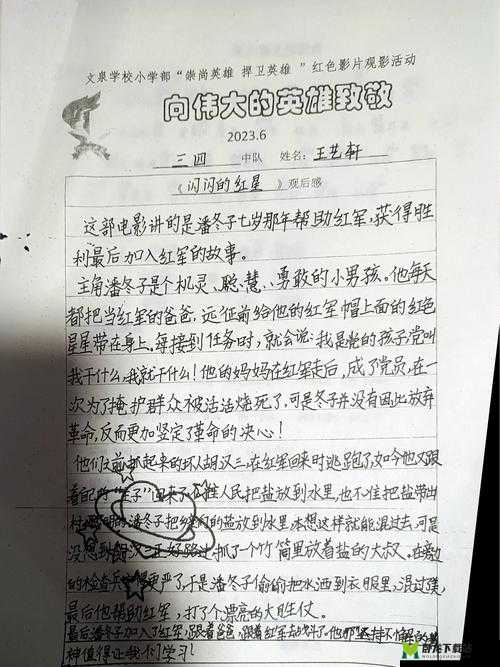 文泉学校小学部“崇尚英雄 捍卫英雄 ”红色影片观影活动
向伟大的英雄致敬
2023.6
三四 中队 姓名：王艺轩
《闪闪的红星》观后感
这部电影讲的是潘冬子七岁那年帮助红军，获得胜
利最后加入红军的故事。
主角潘冬子是个机灵、聪慧、勇敢的小男孩。他每天
都把当红军的爸爸，远征前给他的红军帽上面的红色
星星带在身上。每接到任务时，就会说：我是党的孩子党叫
我干什么，我就干什么！他的妈妈在红军走后，成了党员，在一
次为了掩护群众被活活烧死了，可是冬子并没有因此放弃
革命，反而更加坚定了革命的决心！
他们之前抓起来的坏人胡汉三，在红军回来时逃跑了，如今他又跟
着 回来了 人民把盐放到水里，也不准把盐带出
村 明的潘冬子把乡亲们的盐放到水里，本想这样就能混过去，可是
没想到胡汉三正好路过抓了一个竹筒里放着盐的大叔。
的检查 更严了，于是潘冬子偷偷把水洒到衣服里，混过
最后他帮助红军，打了个漂亮的大胜仗。
最后潘冬子加入了红军，跟着爸爸，跟着红军去战斗了。他那坚持不懈的精
神值得让我们学习！